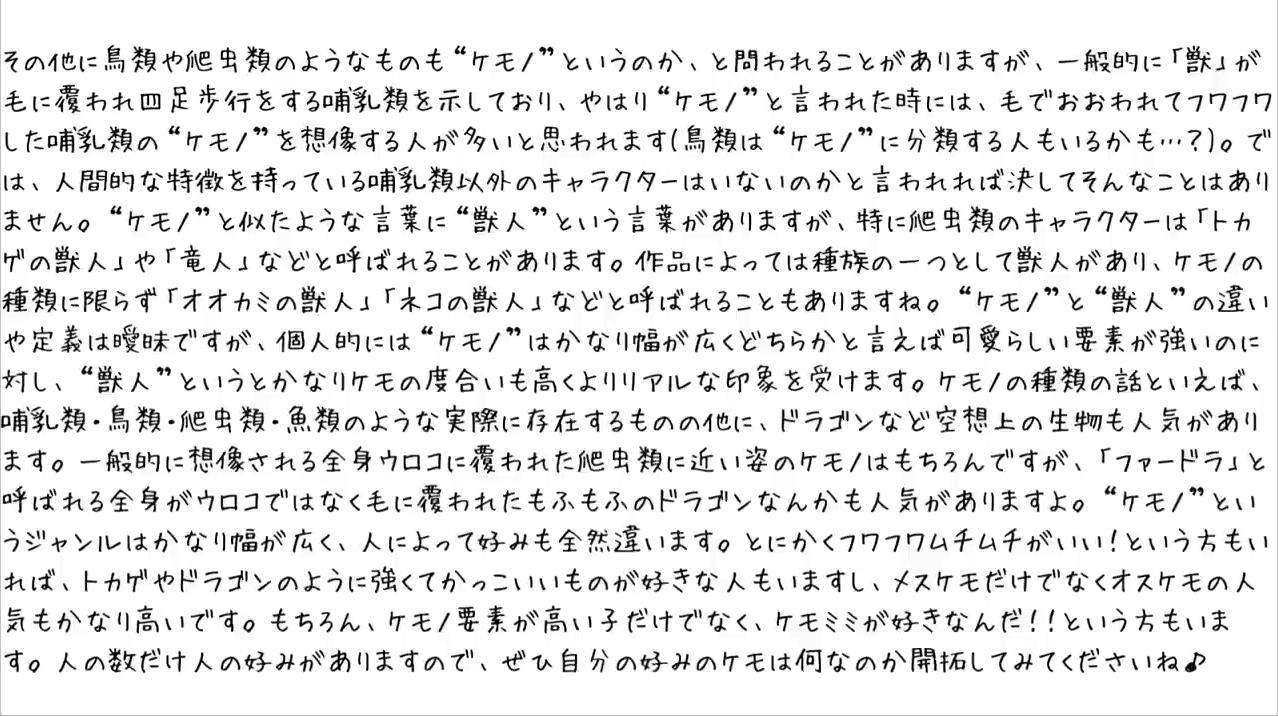 その他に鳥類や爬虫類のようなものも“ケモノ”というのか、と問われることがありますが、一般的に「獣」が
毛に覆われ四足歩行をする哺乳類を示しており、やはり“ケモノ”と言われた時には、毛でおおわれてフワフワ
した哺乳類の“ケモノ”を想像する人が多いと思われます(鳥類は“ケモノ”に分類する人もいるかも…？)。で
は、人間的な特徴を持っている哺乳類以外のキャラクターはいないのかと言われれば決してそんなことはあり
ません。“ケモノ”と似たような言葉に“獣人”という言葉がありますが、特に爬虫類のキャラクターは「トカ
ゲの獣人」や「竜人」などと呼ばれることがあります。作品によっては種族の一つとして獣人があり、ケモノの
種類に限らず「オオカミの獣人」「ネコの獣人」などと呼ばれることもありますね。“ケモノ”と“獣人”の違い
や定義は曖昧ですが、個人的には“ケモノ”はかなり幅が広くどちらかと言えば可愛らしい要素が強いのに
対し、“獣人”というとかなりケモの度合いも高くよりリアルな印象を受けます。ケモノの種類の話といえば、
哺乳類・鳥類・爬虫類・魚類のような実際に存在するものの他に、ドラゴンなど空想上の生物も人気があり
ます。一般的に想像される全身ウロコに覆われた爬虫類に近い姿のケモノはもちろんですが、「ファードラ」と
呼ばれる全身がウロコではなく毛に覆われたもふもふのドラゴンなんかも人気がありますよ。“ケモノ”とい
うジャンルはかなり幅が広く、人によって好みも全然違います。とにかくフワフワムチムチがいい！という方もい
れば、トカゲやドラゴンのように強くてかっこいいものが好きな人もいますし、メスケモだけでなくオスケモの人
気もかなり高いです。もちろん、ケモノ要素が高い子だけでなく、ケモミミが好きなんだ！！という方もいま
す。人の数だけ人の好みがありますので、ぜひ自分の好みのケモは何なのか開拓してみてくださいね♪